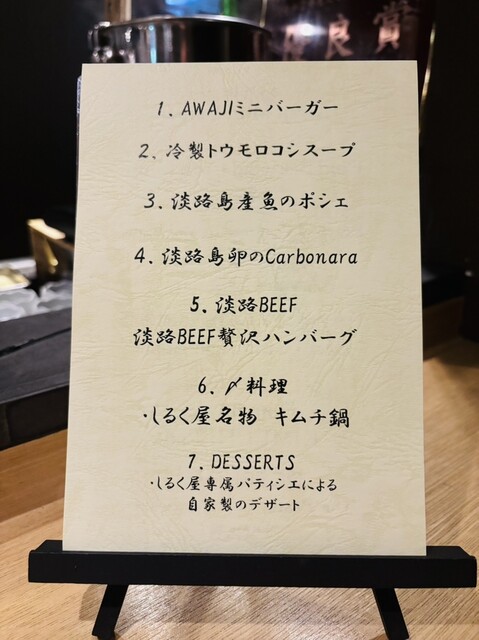 良賞
1. AWAJIミニバーガー
2. 冷製トウモロコシスープ
3. 淡路島産魚のポシェ
4. 淡路島卵のCarbonara
5. 淡路BEEF
淡路BEEF贅沢ハンバーグ
6. 〆料理
・しるく屋名物 キムチ鍋
7. DESSERTS
・しるく屋専属パティシエによる
自家製のデザート